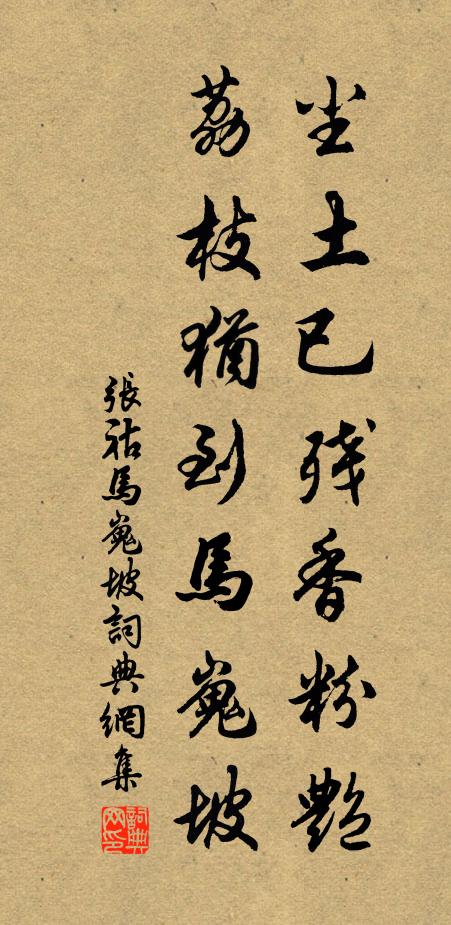 尘土已残香粉艳
荔枝猶到馬嵬坡
張祜馬嵬坡詞典網集
詞典網印